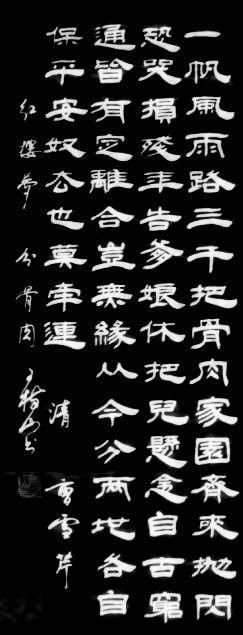 一帆風雨路三千把骨肉家園齊來拋閃
恐哭損殘年告爹娘休把兒懸念自古窮
通皆有定離合豈無緣从今分兩地各自
保平安奴去也莫牽連 清 曹雪芹
紅樓夢 分骨肉